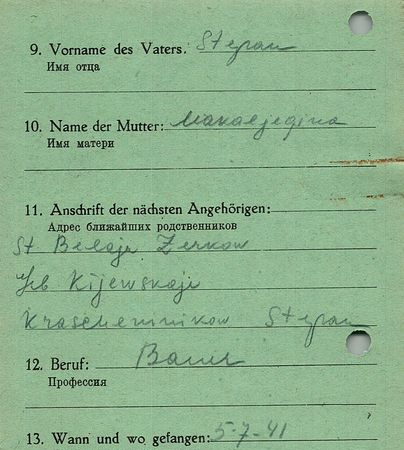 9. Vorname des Vaters. Stepan
Имя отца
10. Name der Mutter:
Имя матери
11. Anschrift der nächsten Angehörigen:
Адрес ближайших родственников
St Belaja Zerkow
Kijewskaja
Krascheninnikow Stepan
12. Beruf: Bauer
Профессия
13. Wann und wo gefangen: 5-7-41